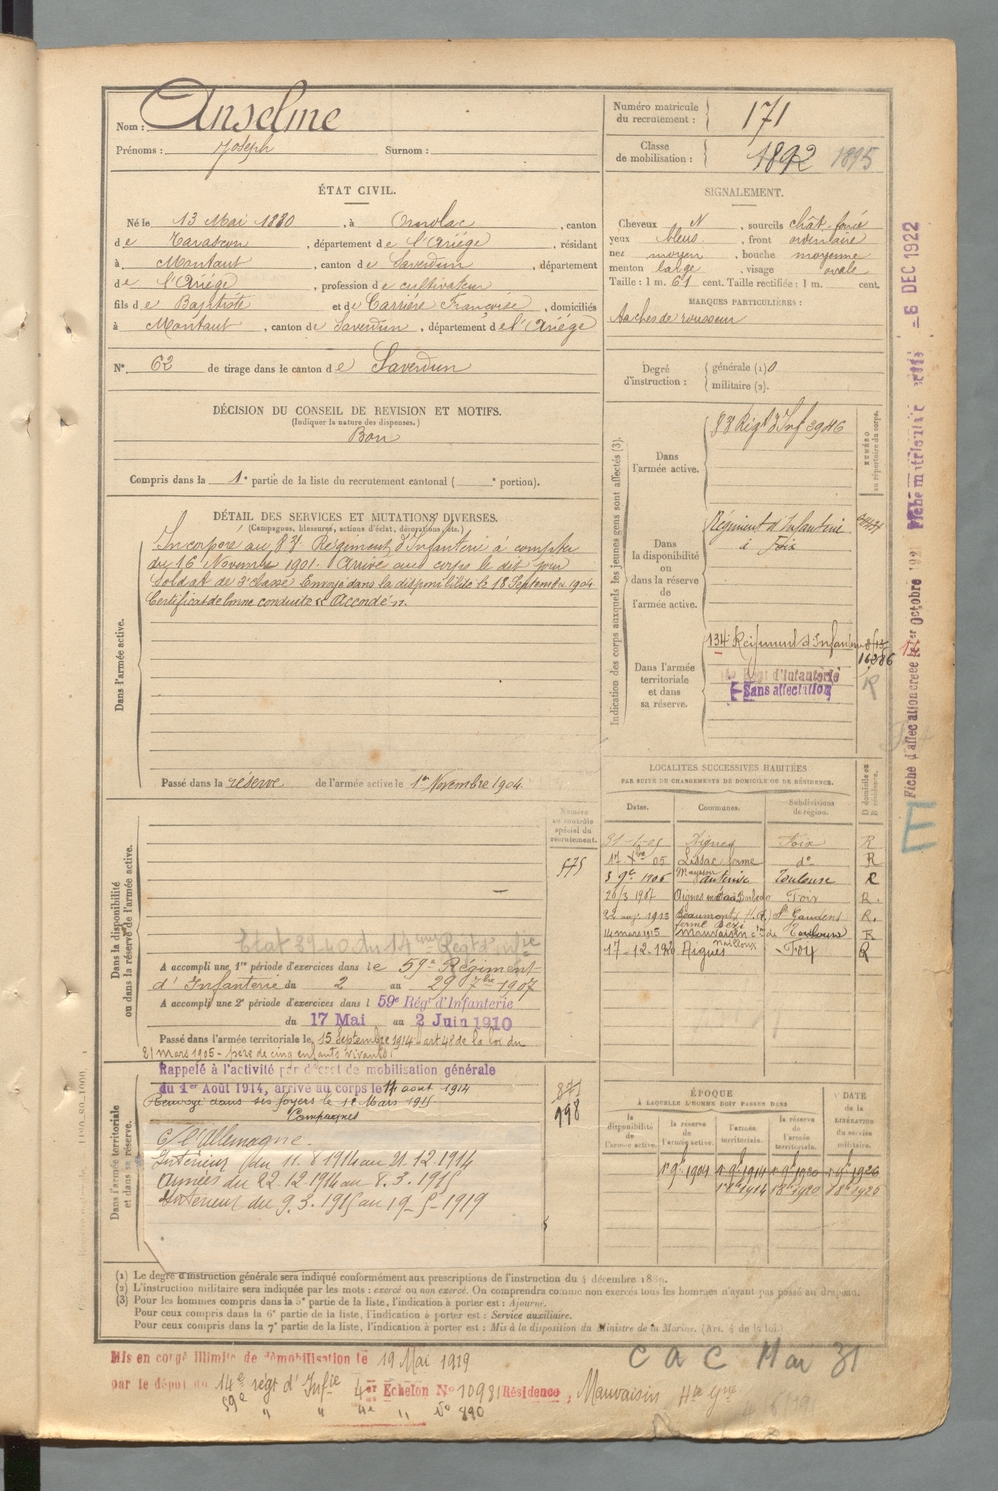 Nom : Anselme
Prénoms : Joseph Surnom :
Numéro matricule du recrutement : 171
Classe de mobilisation : 1892 1895
ÉTAT CIVIL.
Né le 13 Mai 1880, à Ornolac, canton
de Tarascon, département de l'Ariège, résidant
à Montaut, canton de Saverdun, département
de l'Ariège, profession de cultivateur
fils de Baptiste et de Carrière Françoise, domiciliés
à Montaut, canton de Saverdun, département de l'Ariège
N° 62 de tirage dans le canton de Saverdun
SIGNALEMENT.
Cheveux N, sourcils chât. foncé
yeux bleus, front ordinaire
nez moyen, bouche moyenne
menton large, visage ovale
Taille : 1 m. 61 cent. Taille rectifiée : 1 m. cent.
MARQUES PARTICULIÈRES :
taches de rousseur
Degré d'instruction : générale (1) 0
militaire (2).
DÉCISION DU CONSEIL DE REVISION ET MOTIFS.
(Indiquer la nature des dispenses.)
Bon
Compris dans la 1e partie de la liste du recrutement cantonal ( e portion).
DÉTAIL DES SERVICES ET MUTATIONS DIVERSES.
(Campagnes, blessures, actions d'éclat, décorations, etc.)
Dans l'armée active.
Incorporé au 83e Régiment d'Infanterie à compter
du 16 Novembre 1901. Arrivé au corps le dit jour
Soldat de 2e classe. Envoyé dans la disponibilité le 18 Septembre 1904
Certificat de bonne conduite "Accordé".
Passé dans la réserve de l'armée active le 1er Novembre 1904
Indication des corps auxquels les jeunes gens sont affectés (3).
NUMÉRO au répertoire du corps.
Dans l'armée active.
83 Régt d'Inf 3946
Dans la disponibilité ou dans la réserve de l'armée active.
Régiment d'Infanterie
à Foix
Dans l'armée territoriale et dans sa réserve.
134 Régiment d'Infanterie
16386
Régt d'Infanterie
Sans affectation
R
LOCALITÉS SUCCESSIVES HABITÉES
PAR SUITE DE CHANGEMENTS DE DOMICILE OU DE RÉSIDENCE.
Dates. Communes. Subdivisions de région. D domicile ou R résidence.
Foix R
17 Xbre 05 Lissac ferme do R
3 9e 1906 Toulouse R
20/3 1907 Aignes Foix R.
22 1913 Beaumont St Gaudens R.
14 mars 1915 Mauvaisin Toulouse R
17-12-1920 Aignes Foix R
Dans la disponibilité ou dans la réserve de l'armée active.
Numéro au contrôle spécial du recrutement.
575
A accompli une 1re période d'exercices dans le 59e Régiment
d'Infanterie du 2 au 29 7bre 1907
A accompli une 2e période d'exercices dans l 59e Régt d'Infanterie
du 17 Mai au 2 Juin 1910
Passé dans l'armée territoriale le 15 septembre 1914 art 48 de la loi du
21 mars 1905 - père de cinq enfants vivants.
Dans l'armée territoriale et dans sa réserve.
Rappelé à l'activité par décret de mobilisation générale
du 1er Août 1914, arrivé au corps le 11 aout 1914
Renvoyé dans ses foyers le 12 Mars 1915
Campagnes
c/ l'Allemagne.
Intérieur du 11.8.1914 au 21.12.1914
Armées du 22.12.1914 au 8.3.1915
Intérieur du 9.3.1915 au 19-5-1919
871
998
ÉPOQUE
À LAQUELLE L'HOMME DOIT PASSER DANS
la disponibilité de l'armée active. la réserve de l'armée active. l'armée territoriale. la réserve de l'armée territoriale. DATE de la LIBÉRATION du service militaire.
1er 9e 1904 1er 9e 1914 1er 9e 1920 1er 9e 1926
(1) Le degré d'instruction générale sera indiqué conformément aux prescriptions de l'instruction du 4 décembre 1889.
(2) L'instruction militaire sera indiquée par les mots : exercé ou non exercé. On comprendra comme non exercés tous les hommes n'ayant pas passé au drapeau.
(3) Pour les hommes compris dans la 5e partie de la liste, l'indication à porter est : Ajourné.
Pour ceux compris dans la 6e partie de la liste, l'indication à porter est : Service auxiliaire.
Pour ceux compris dans la 7e partie de la liste, l'indication à porter est : Mis à la disposition du Ministre de la Marine. (Art. 4 de la loi.)
Mis en congé illimité de démobilisation le 19 Mai 1919
par le dépôt du 14e régt d'Infie 4er Echelon No 10931 Résidence, Mauvaisin Hte Gne
59e " " 4e " No 890
C a C Mai 31
Fiche d'affectation créée le 1er octobre 1921
-6 DEC 1922
E